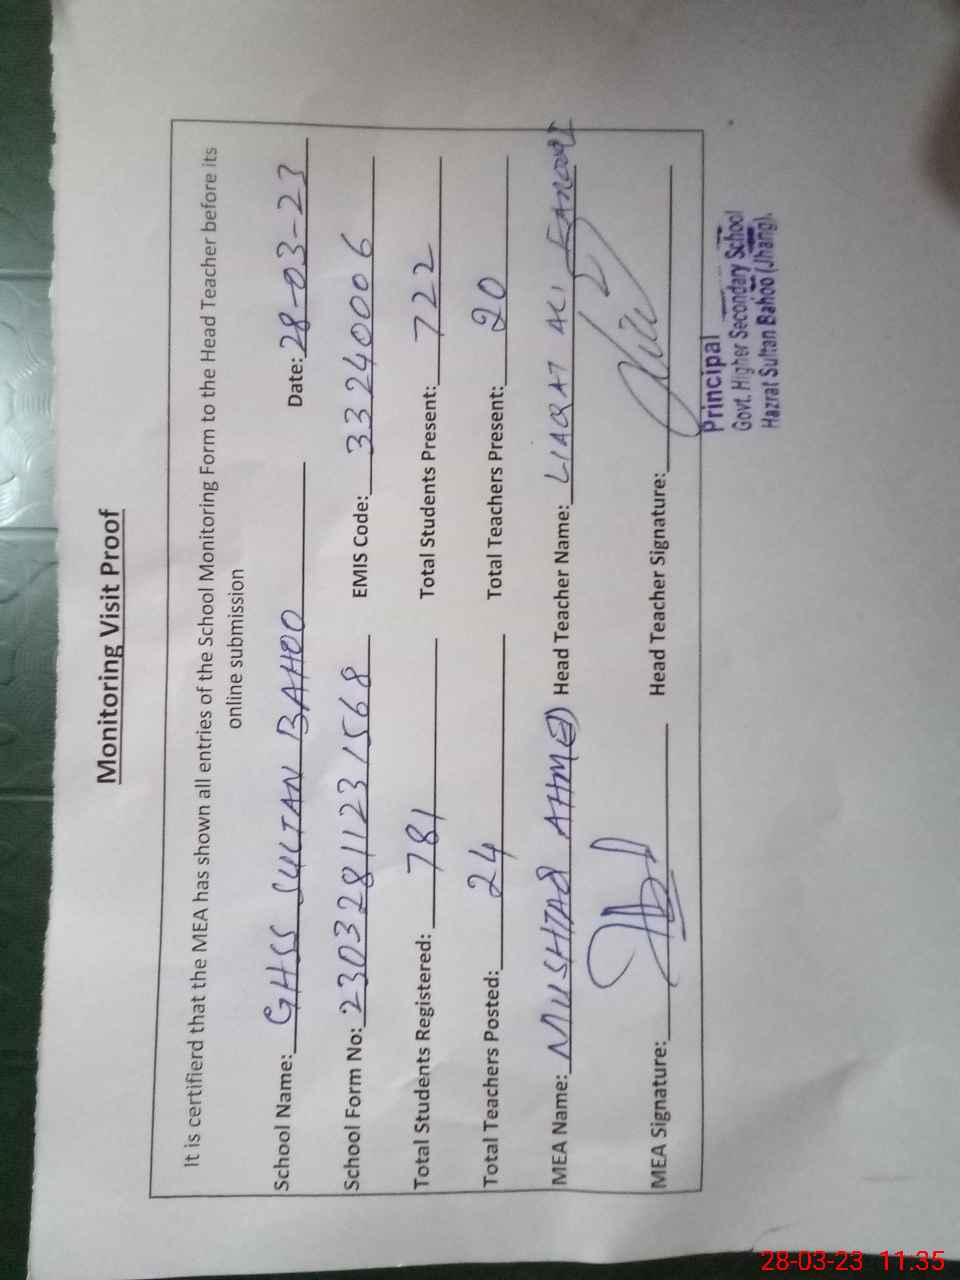 Monitoring Visit Proof
It is certifierd that the MEA has shown all entries of the School Monitoring Form to the Head Teacher before its
online submission
School Name: GHSS SULTAN BAHOO Date: 28-03-23
School Form No: 23032811231568 EMIS Code: 33240006
Total Students Registered: 781 Total Students Present: 722
Total Teachers Posted: 24 Total Teachers Present: 20
MEA Name: MUSHTAQ AHMED Head Teacher Name: LIAQAT ALI
MEA Signature: Head Teacher Signature:
Principal
Govt. Higher Secondary School
Hazrat Sultan Bahoo (Jhang).
28-03-23 11:35